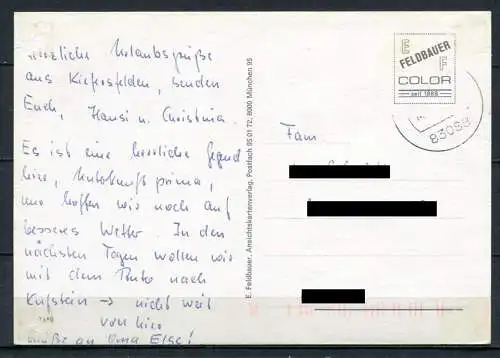 Herzliche Urlaubsgrüße
aus Kiefersfelden, senden
Euch, Hansi u. Christina.
Es ist eine herrliche Gegend
hier, Unterkunft prima,
nur hoffen wir noch auf
besseres Wetter. In den
nächsten Tagen wollen wir
mit dem Auto nach
Kufstein → nicht weit
von hier
Grüße an Oma Else!
E. Feldbauer, Ansichtskartenverlag, Postfach 95 01 72, 8000 München 95
E
FELDBAUER
F
COLOR
seit 1886
83088
Fam